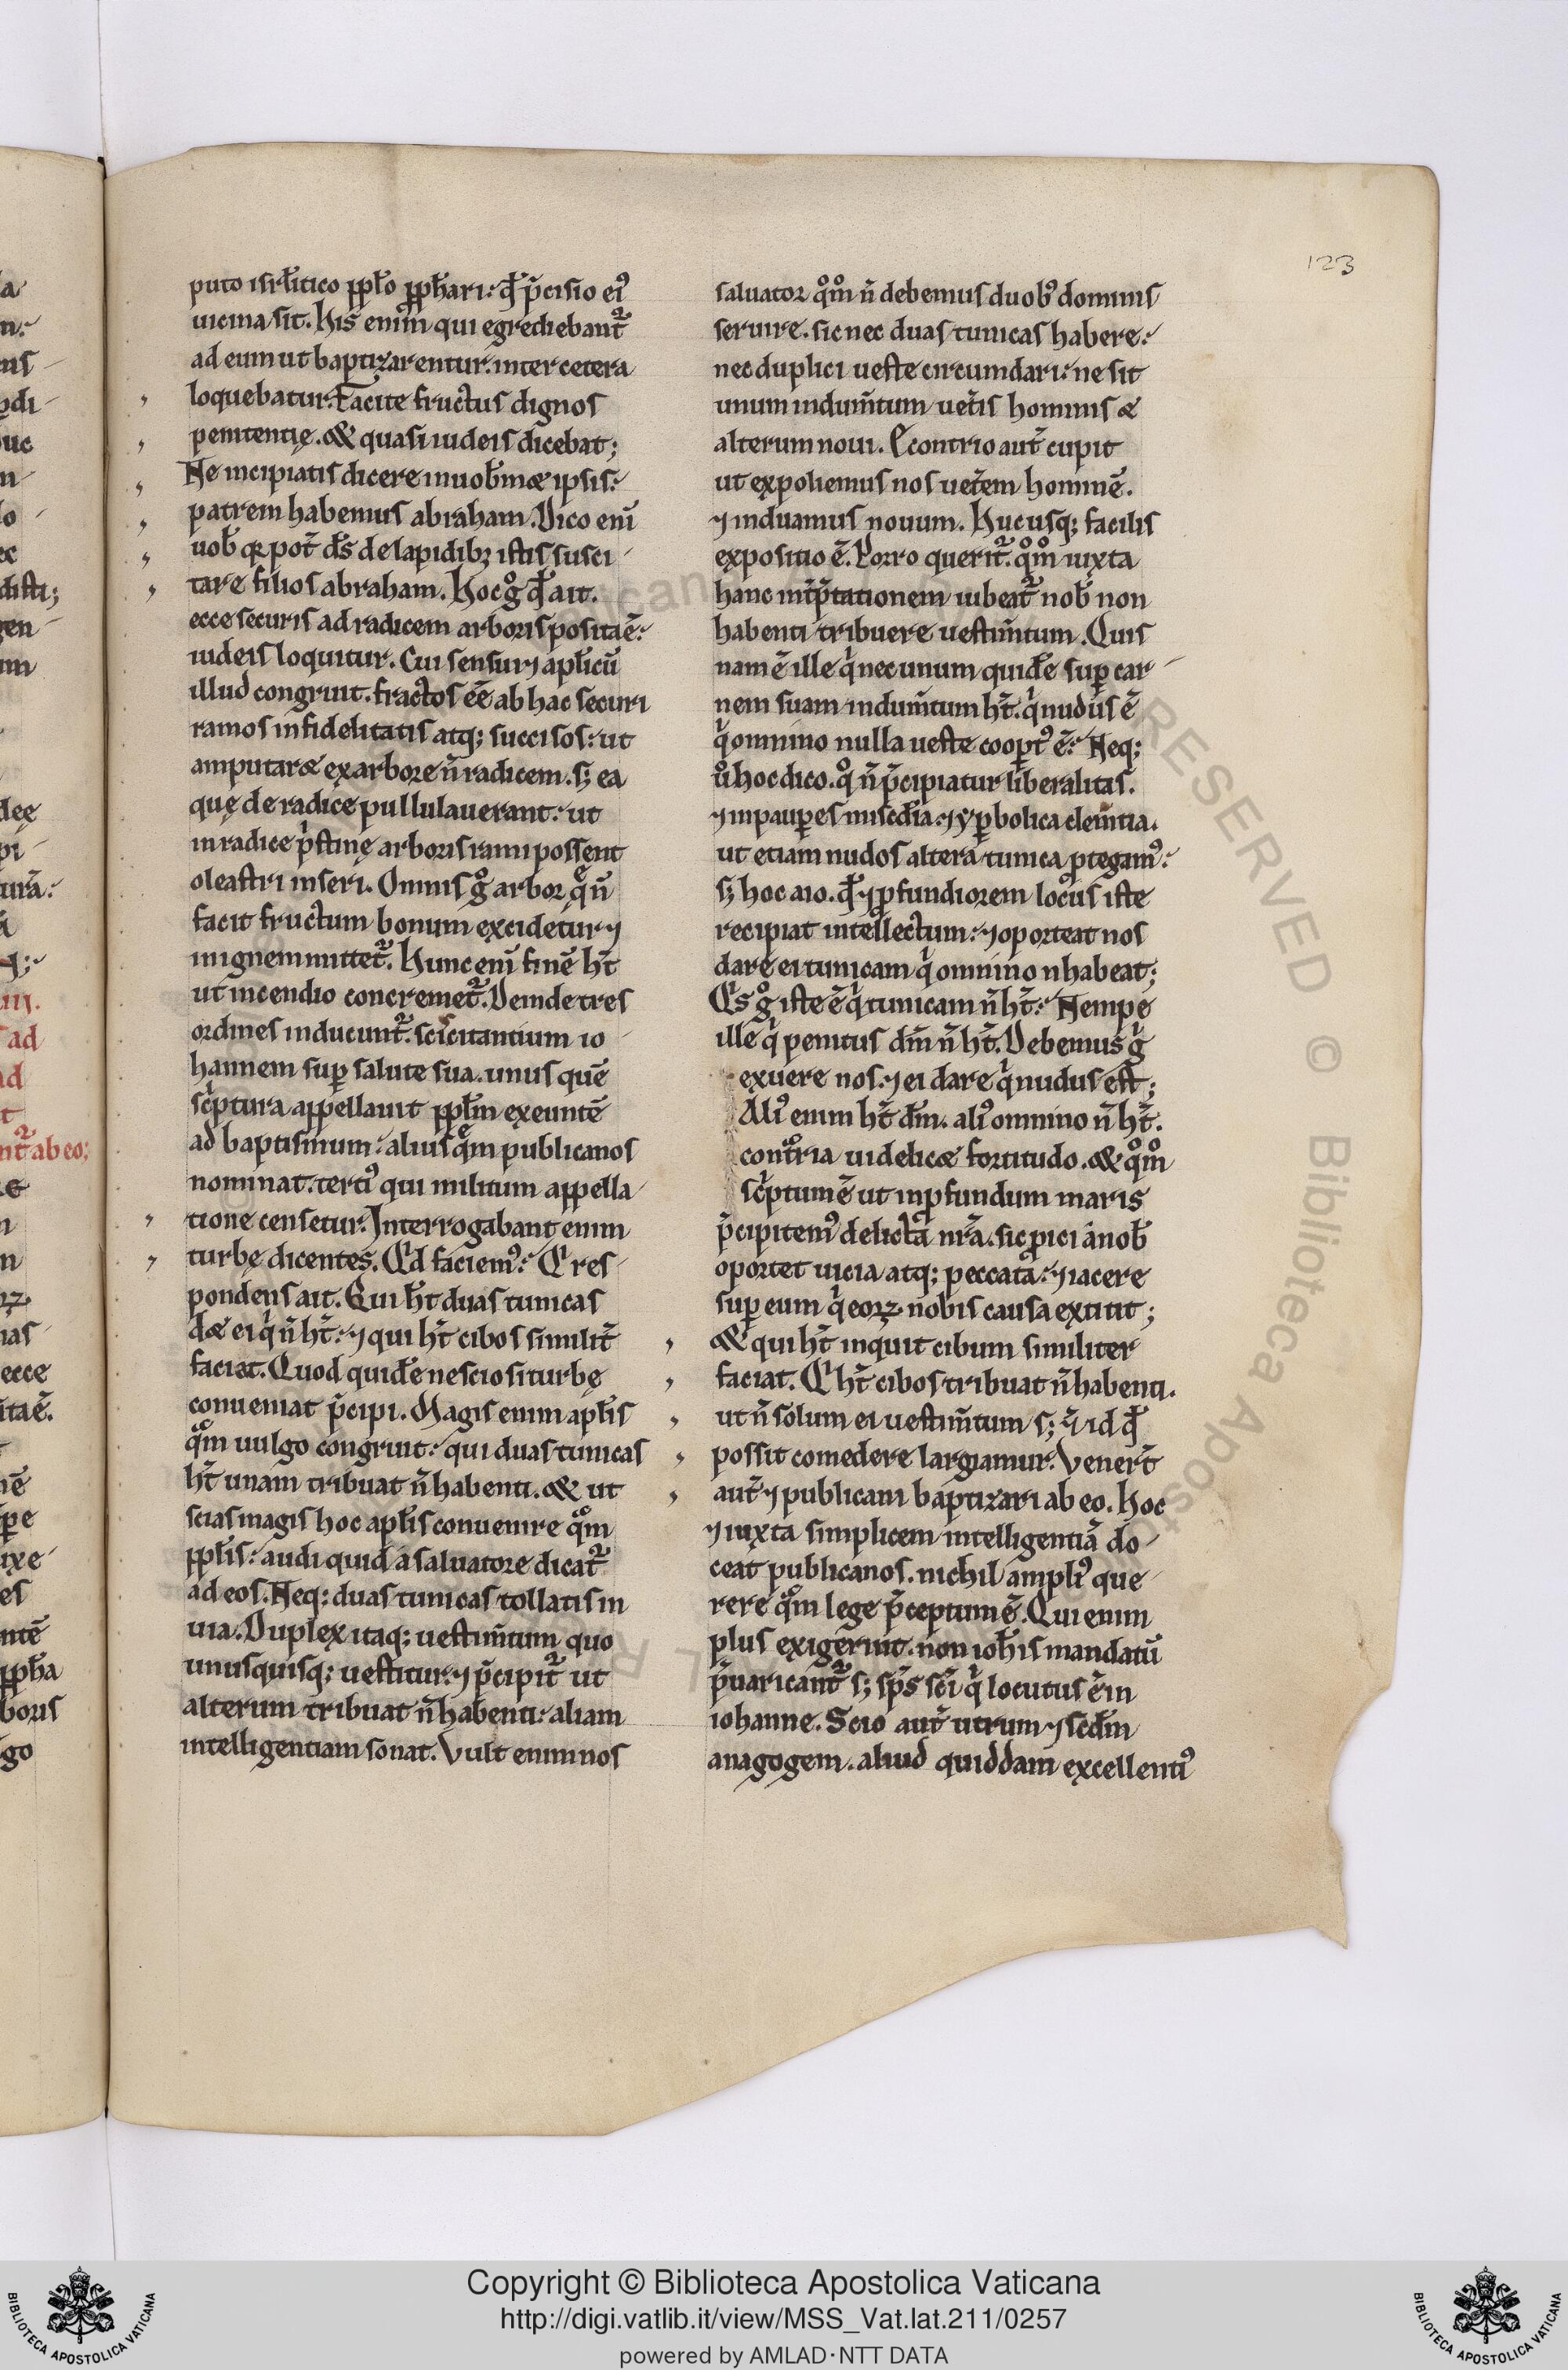 puto isrl̄itico pp̄lo pp̄hari: qd̄ p̄cisio ei᾿
uicina sit. His enim qui egrediebant᷑
ad eum ut baptizarentur. inter cetera
loquebatur. Facite fructus dignos
penitentię. & quasi iudeis dicebat;
Ne incipiatis dicere in uob̄mæ ipsis:
patrem habemus abraham. Dico eni̅
uob̄ qꝛ pot̄ ds̄ de lapidibꝫ istis susci-
tare filios abraham. Hoc gͦ qd̄ ait.
ecce securis ad radicem arboris posita ē:
iudeis loquitur. Cui sensui ⁊ apl̄icū
illud congruit. fractos eē ab hac securi
ramos infidelitatis atq; succisos: ut
amputaræ ex arbore n̄ radicem. s; ea
quę de radice pullulauerant: ut
in radice p͛stinę arboris rami possent
oleastri inseri. Omnis gͦ arbor q̨ n̄
facit fructum bonum excidetur ⁊
in ignem mittet᷑. Hunc eni̅ finē ht̄
ut incendio concremet᷑. Deinde tres
ordines inducunt᷑. sciscitantium io-
hannem suꝑ salute sua. unus quē
sc͛ptura appellauit pp̄lm exeuntē
ad baptismum: alius qͤm publicanos
nominat. terti᾿ qui militum appella-
tione censetur. Interrogabant enim
turbę dicentes. Qd faciem᾿: Et res-
pondens ait. Qui ht̄ duas tunicas
dæ ei q͛ n̄ ht̄: ⁊ qui ht̄ cibos similit̄
faciat. Quod quidē nescio si turbę
conueniat p̄cipi. Magis enim apl̄is
qͣm uulgo congruit: qui duas tunicas
ht̄ unam tribuat n̄ habenti. & ut
scias magis hoc apl̄is conuenire qͣm
pp̄lis: audi quid a saluatore dicat᷑
ad eos. Neq; duas tunicas tollatis in
uia. Duplex itaq; uestim̄tum quo
unusquisq; uestitur. ⁊ p̄cipit᷑ ut
alterum tribuat n̄ habenti: aliam
intelligentiam sonat. Vult enim nos
123
saluator qͦmͦ n̄ debemus duob᾿ dominis
seruire. sic nec duas tunicas habere:
nec duplici ueste circumdari: ne sit
unum indum̄tum uet̄is hominis æ
alterum noui. Econtrio aut̄ cupit
ut expoliemus nos uet̄em hominē.
⁊ induamus nouum. Hucusq; facilis
expositio ē. Porro querit᷑. qͦmͦ iuxta
hanc int̄p̄tationem iubeat᷑ nob̄ non
habenti tribuere uestim̄tum. Quis
nam ē ille q͛ nec unum quidē suꝑ car-
nem suam indum̄tum ht̄. q͛ nudus ē
q͛ omnino nulla ueste cooꝑt᾿ ē: Neq;
uͦ hoc dico. qͦ n̄ p̄cipiatur liberalitas.
⁊ in pauꝑes mis̄cdia: ⁊ yꝑbolica clem̄tia.
ut etiam nudos altera tunica ꝓtegam᾿:
s; hoc aio. qd̄ ⁊ ꝓfundiorem locus iste
recipiat intellectum: ⁊ oporteat nos
dare ei tunicam q͛ omnino n habeat;
Qs gͦ iste ē q͛ tunicam n̄ ht̄: Nempe
ille q͛ penitus dm̄ n̄ ht̄. Debemus gͦ
exuere nos. ⁊ ei dare q͛ nudus est;
Ali᾿ enim ht̄ dm̄. ali᾿ omnino n̄ ht̄.
contͣria uidelicæ fortitudo. & qͦmͦ
sc͛ptum ē ut in ꝓfundum maris
p̄cipitem᾿ delicta nr̄a. sic ꝓici a nob̄
oportet uicia atq; peccata: ⁊ iacere
suꝑ eum q͛ eoꝝ nobis causa extitit;
& qui ht̄ inquit cibum similiter
faciat. Q ht̄ cibos tribuat n̄ habenti.
ut n̄ solum ei uestim̄tum s; ⁊ id qd̄
possit comedere largiamur. Venert̄
aut̄ ⁊ publicani baptizari ab eo. Hoc
⁊ iuxta simplicem intelligentiā do-
ceat publicanos. nichil ampli᾿ que-
rere qͣm lege p̄ceptum ē. Qui enim
plus exigerint. non ioh̄is mandatū
p̄uaricant᷑ s; sp̄s sc̄i q͛ locutus ē in
iohanne. Scio aut̄ utrum ⁊ scd̄m
anagogem. aliud quiddam excellenti᾿
Copyright © Biblioteca Apostolica Vaticana
http://digi.vatlib.it/view/MSS_Vat.lat.211/0257
powered by AMLAD·NTT DATA
BIBLIOTECA APOSTOLICA VATICANA
BIBLIOTECA APOSTOLICA VATICANA